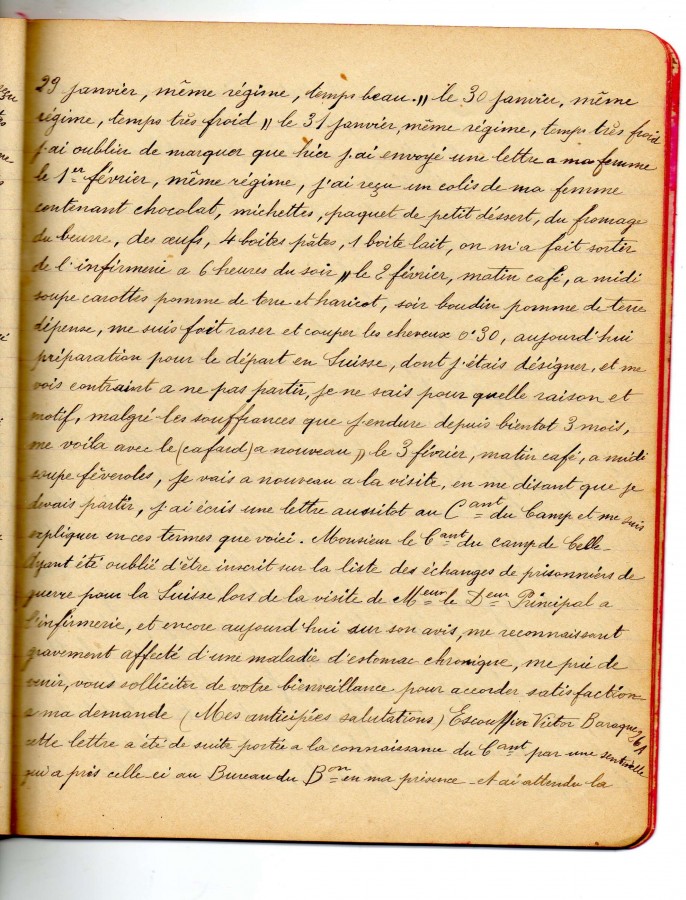 29 janvier, même régime, temps beau. 〃 le 30 janvier, même
régime, temps très froid 〃 le 31 janvier même régime, temps très froid
j'ai oublier de marquer que hier j'ai envoyé une lettre a ma femme
le 1er février, même régime, j'ai reçu un colis de ma femme
contenant chocolat, michettes, paquet de petit déssert, du fromage
du beurre, des œufs, 4 boites pâtes, 1 boite lait, on m'a fait sortir
de l'infirmerie a 6 heures du soir 〃 le 2 février, matin café, a midi
soupe carottes pomme de terre et haricot, soir boudin pomme de terre
dépense, me suis fait raser et couper les cheveux 0'30, aujourd'hui
préparation pour le départ en Suisse, dont j'étais désigner, et me
vois contraint a ne pas partir, je ne sais pour quelle raison et
motif, malgré les souffrances que j'endure depuis bientot 3 mois,
me voila avec le (cafard) a nouveau 〃 le 3 février, matin café, a midi
soupe féveroles, je vais a nouveau a la visite, en me disant que je
devais partir, j'ai écris une lettre aussitot au Cant du Camp et me suis
expliquer en ces termes que voici. Monsieur le Cant du camp de Celle
Ayant été oublié d'être inscrit sur la liste des échanges de prisonniers de
guerre pour la Suisse lors de la visite de Meur le Deur Principal a
l'infirmerie, et encore aujourd'hui sur son avis, me reconnaissant
gravement affecté d'une maladie d'estomac chronique, me prie de
venir, vous solliciter de votre bienveillance pour accorder satisfaction
a ma demande (Mes anticipées salutations) Escouffier Victor Baraque 36A
cette lettre a été de suite portée a la connaissance du Cant par une sentinelle
qui a pris celle-ci au Bureau du Bon en ma présence et ai attendu la